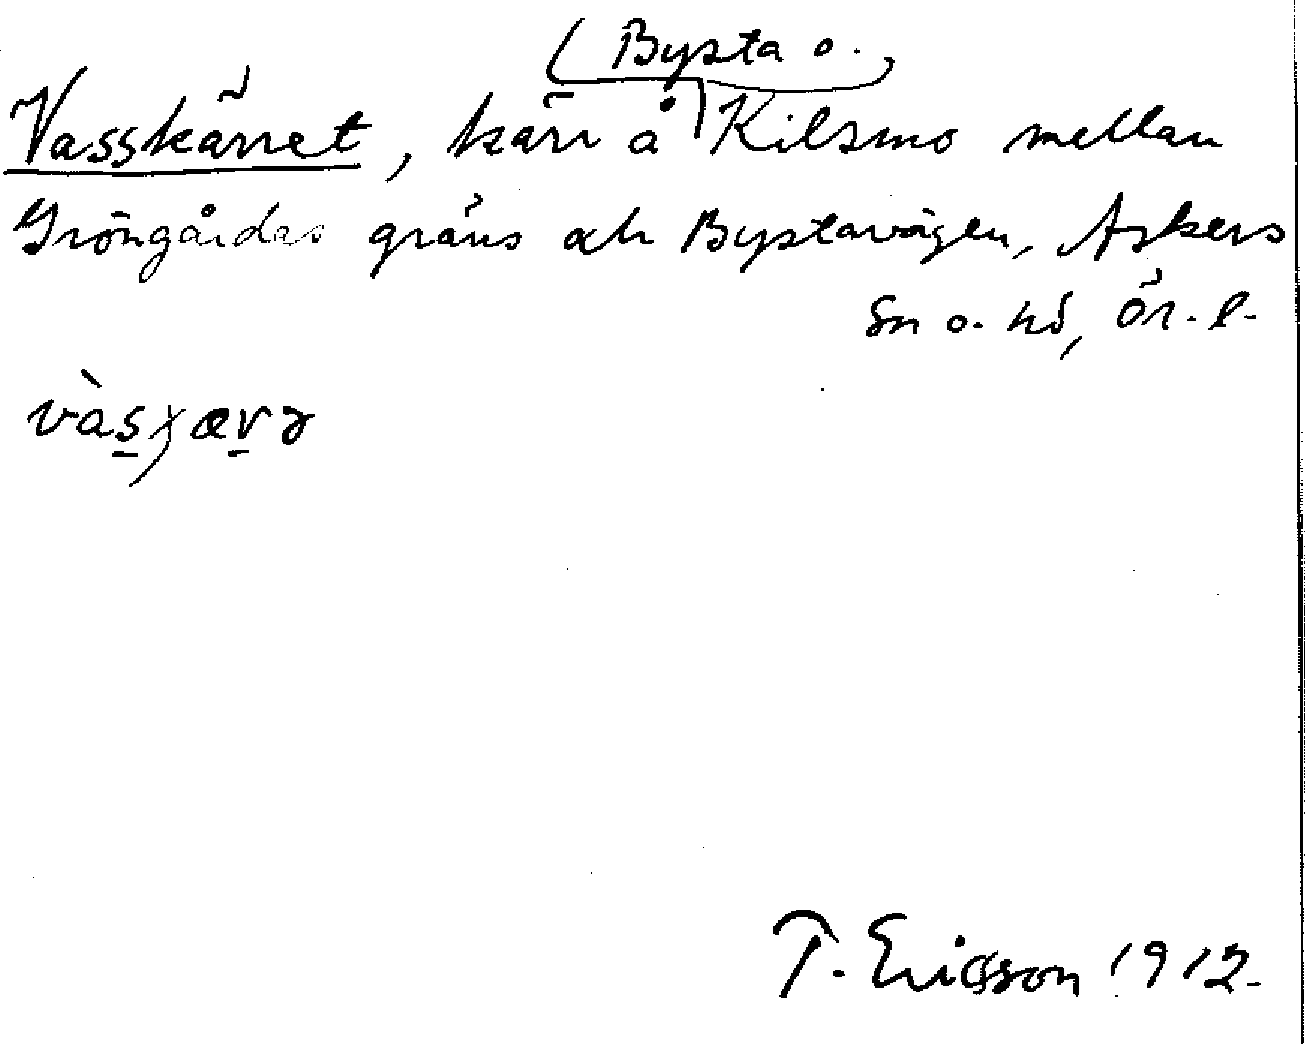 (Bysta o.)
Vasskärret, kärr å Kilsmo mellan
Gröngärdes gräns och Bystavägen, Askers
sn o. hd, Ör. l.
T. Ericsson 1912.